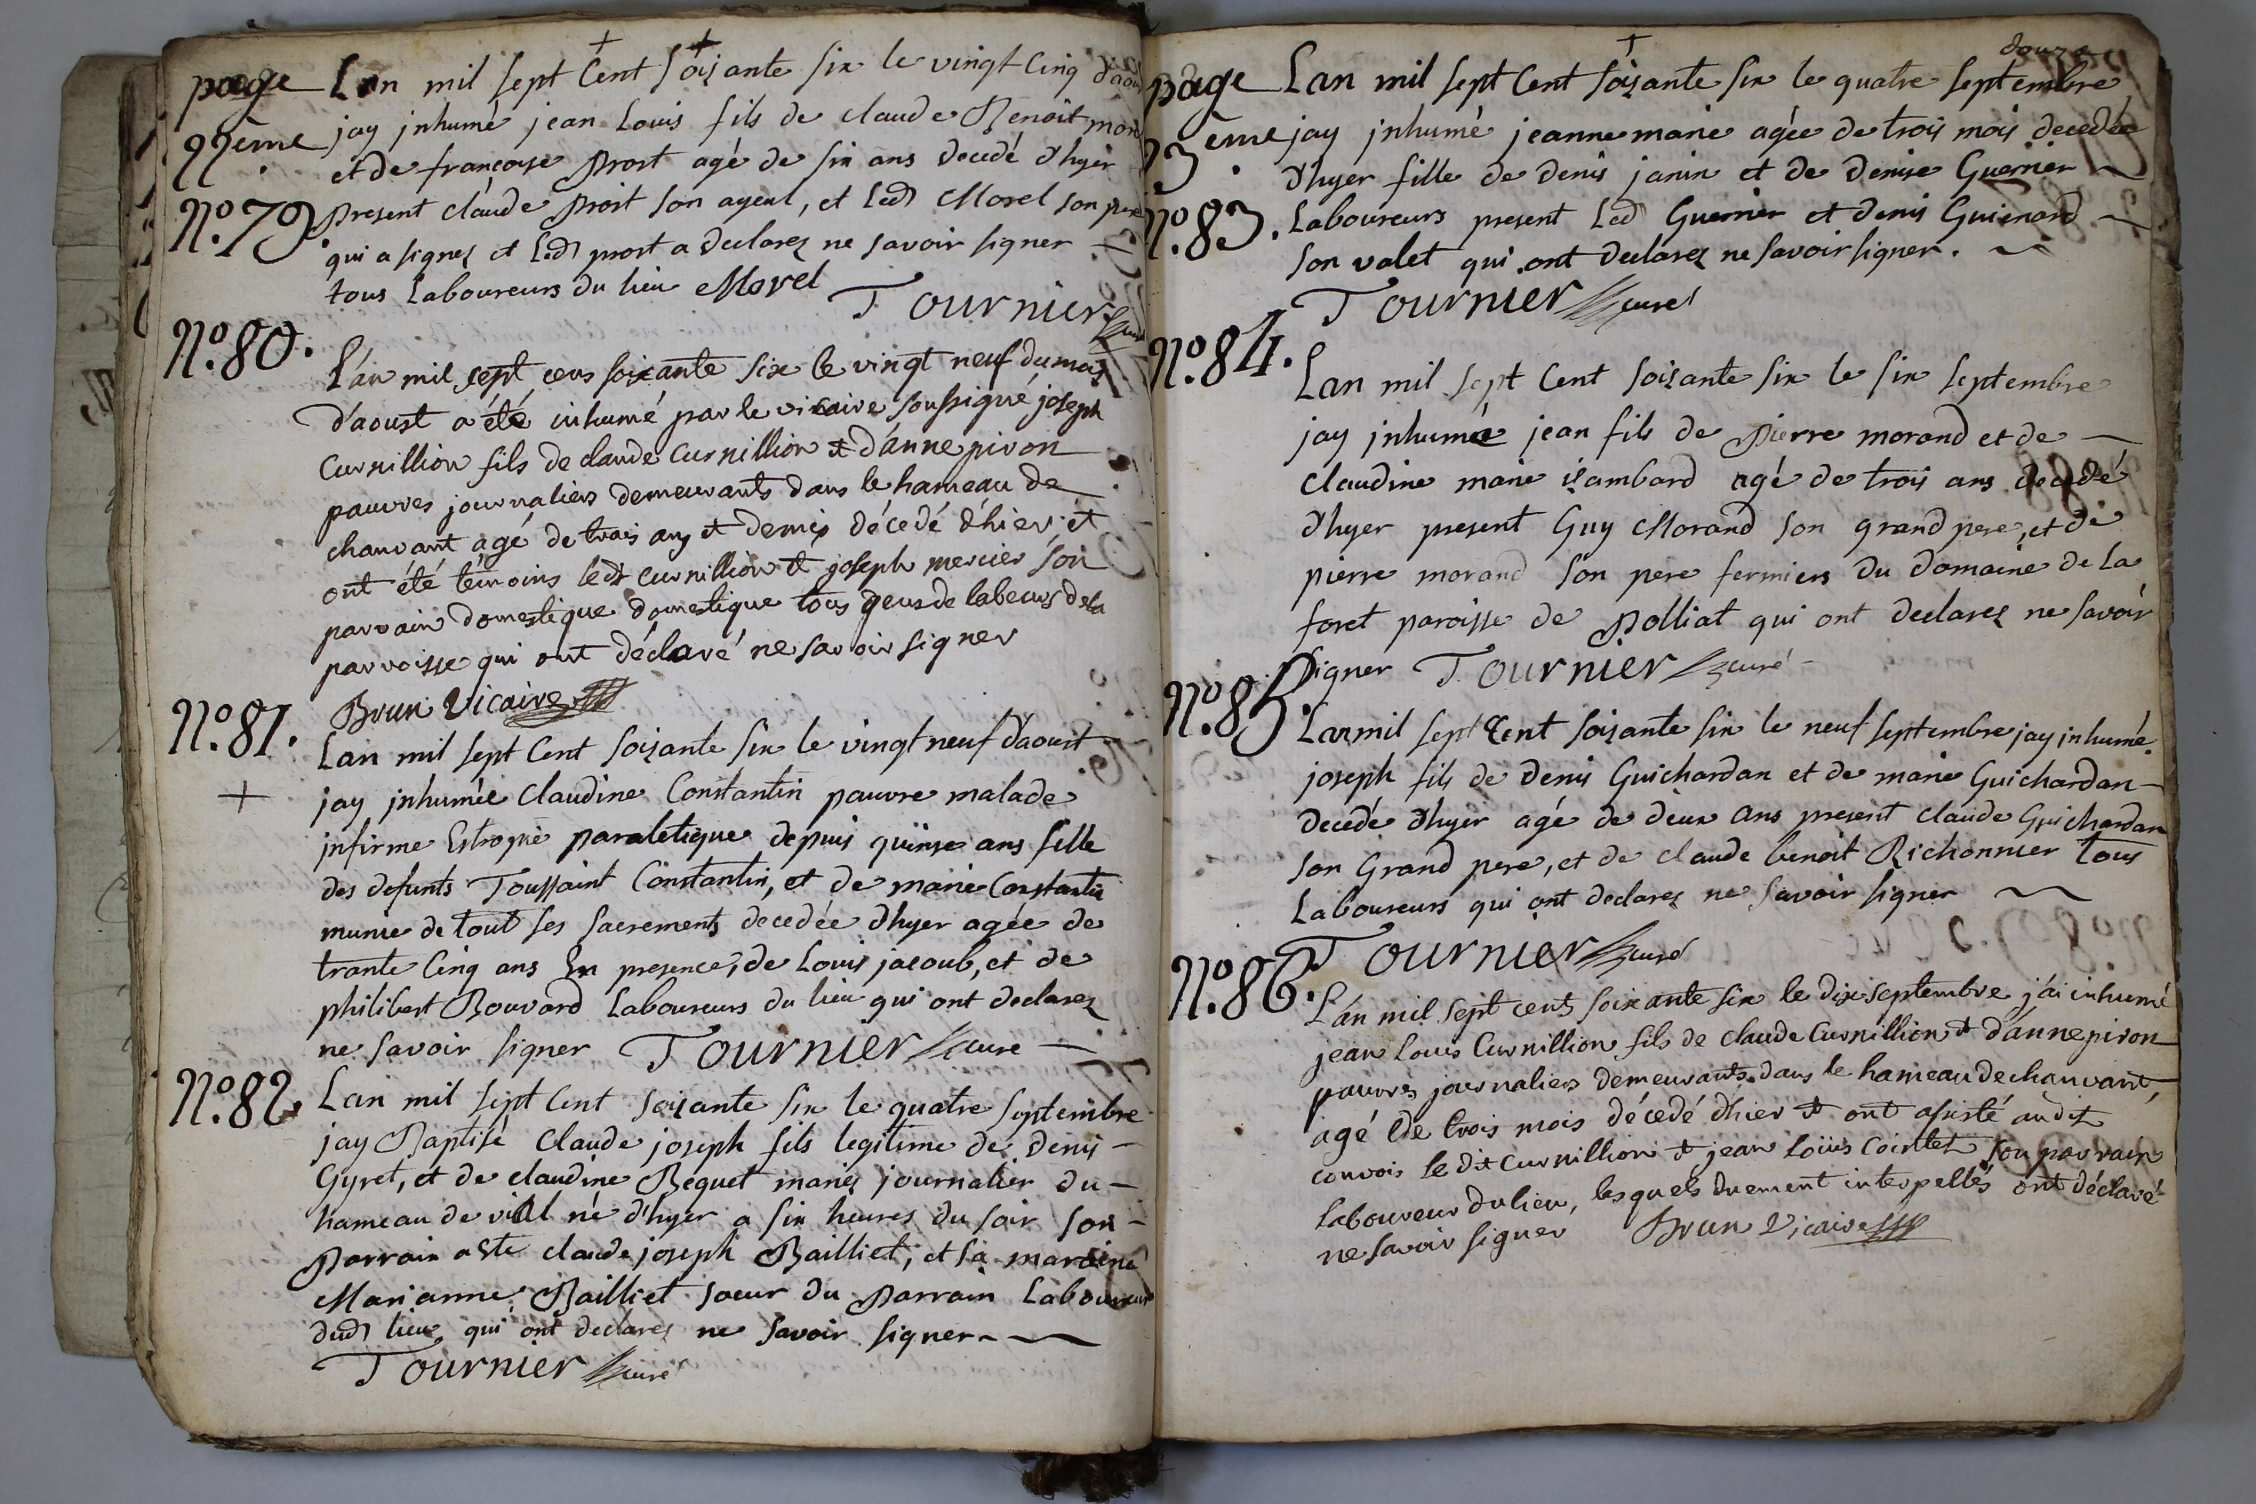 page
22ème
Lan mil sept Cent soizante six le vingt Cinq d'aou
jay jnhumé jean Louis fils de claude Benoit more
et de françoise prost agé de six ans decedé d'hyer
N.º 79.
present claude prost son ayeul, et led Morel son pere
qui a signez et led prost a declarez ne savoir signer
tous Laboureurs du lieu Morel
Tournier curé
N.º 80.
L'an mil sept cens soixante six le vingt neuf du mois
d'aoust a été inhumé par le vicaire soussigné joseph
Curnillion fils de claude Curnillion et d'anne piron
pauvres journaliers demeurants dans le hameau de
chanvant agé de trois ans et demis décedé d'hier et
ont été témoins ledt curnillion et joseph mercier son
parrain domestique domestique tous gens de labeurs de la
parroisse qui ont déclaré ne savoir signer
Brun Vicaire
N.º 81.
Lan mil sept Cent soizante six le vingt neuf d'aoust
jay jnhumée Claudine Constantin pauvre malade
infirme Estropié paraletique depuis quinse ans fille
des defunts Toussaint Constantin, et de marie Constantin
munie de tout ses sacrements decedée d'hyer agée de
trante Cinq ans En presence, de Louis jacoub, et de
philibert Bouvard Laboureurs du lieu qui ont declarez
ne savoir signer Tournier curé
N.º 82.
Lan mil sept Cent soizante six le quatre septembre
jay Baptisé Claude joseph fils legitime de Denis
Gyret, et de claudine Beguet mariés journalier du
hameau de vial né d'hyer a six heures du soir son
Parrain a ete claude joseph Bailliet, et sa maraine
Marianne Bailliet soeur du Parrain Laboureur
dud lieu qui ont declarez ne savoir signer
Tournier curé
douze
page
23ème
Lan mil sept Cent soizante six le quatre septembre
jay jnhumé jeanne marie agée de trois mois decedée
d'hyer fille de denis janin et de denise Guerrier
N.º 83.
Laboureurs present Led Guerrier et denis Guienard
son valet qui ont declarez ne savoir signer.
Tournier curé
N.º 84.
Lan mil sept Cent soizante six le six septembre
jay jnhumé jean fils de Pierre morand et de
claudine marie isambard agé de trois ans decedé
d'hyer present Guy Morand son grand pere, et de
pierre morand son pere fermiers du domaine de la
foret paroisse de Polliat qui ont declarez ne savoir
signer Tournier curé
N.º 85.
Lan mil sept Cent soizante six le neuf septembre jay jnhumé
joseph fils de denis Guichardan et de marie Guichardan
decedé d'hyer agé de deux ans present claude Guichardan
son Grand pere, et de claude benoit Richonnier tous
Laboureurs qui ont declarez ne savoir signer
Tournier curé
N.º 86.
L'an mil sept cents soixante six le dix septembre j'ai inhumé
jean Louis Curnillion fils de claude Curnillion et d'anne piron
pauvres journaliers demeurants dans le hameau de chanvant,
agé de trois mois décedé d'hier et ont assisté au dit
convois le dit curnillion et jean Louis Cointet son parrain
laboureur du lieu, lesquels duement interpellés ont déclaré
ne savoir signer Brun Vicaire